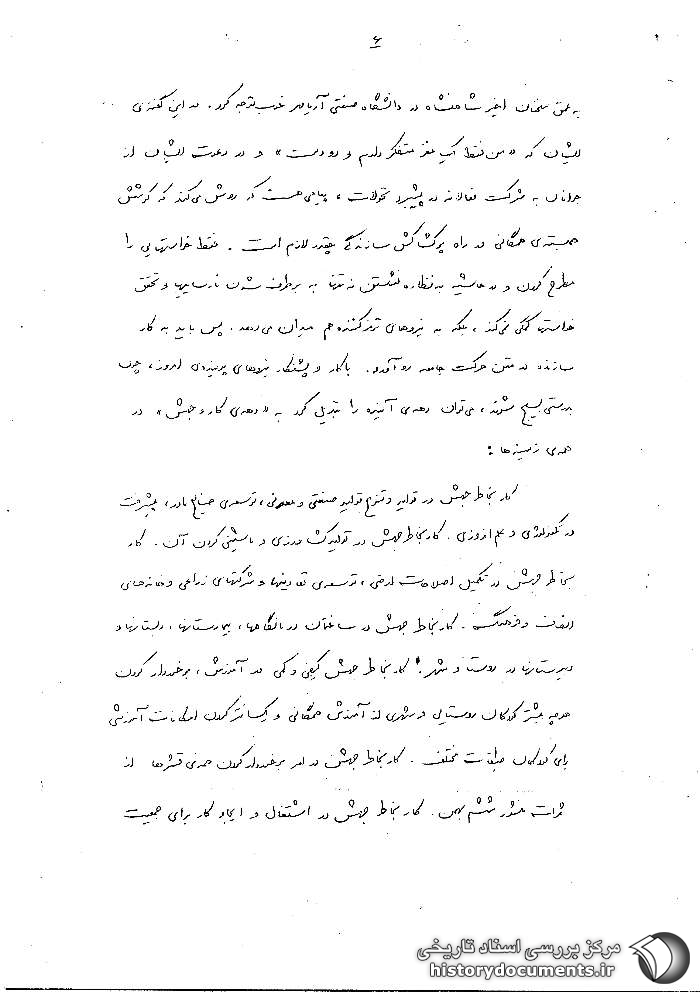 ۶
به عمق سخنان اخیر شاهنشاه در دانشگاه صنعتی آریامهر خوب توجه کرد. در این گفته‌ی
ایشان که «من فقط یک مغز متفکر دارم و دو دست» و در دعوت ایشان از
جوانان به شرکت فعالانه در پیشبرد تحولات، پیامی هست که روشن می‌کند که کوشش
همبسته‌ی همگانی در راه سازندگی چقدر لازم است. فقط خواستهایی را
مطرح کردن و در حاشیه به نظاره نشستن نه تنها به برطرف شدن نارساییها و تحقق
خواستها کمکی نمی‌کند، بلکه به نیروهای ترمز کننده هم میدان می‌دهد. پس باید به کار
سازنده در متن حرکت جامعه رو آورد. با کار و پشتکار نیروهای پوینده‌ی امروز، چون
بدرستی بسیج شوند، می‌توان دهه‌ی آینده را تبدیل کرد به «دهه‌ی کار و جهش» در
همه‌ی زمینه‌ها:
کار بخاطر جهش در تولید و تنوع تولید صنعتی و معدنی، توسعه‌ی صنایع مادر، پیشرفت
در تکنولوژی و علم اندوزی. کار بخاطر جهش در تولید کشاورزی و ماشینی کردن آن. کار
بخاطر جهش در تکمیل اصلاحات ارضی، توسعه‌ی تعاونیها و شرکتهای زراعی و خانه‌های
انصاف و فرهنگ. کار بخاطر جهش در ساختمان درمانگاهها، بیمارستانها، دبستانها و
دبیرستانها در روستا و شهر. کار بخاطر جهش کیفی و کمی در آموزش، برخوردار کردن
هرچه بیشتر کودکان روستایی و شهری از آموزش همگانی و یکسانتر کردن امکانات آموزشی
برای کودکان طبقات مختلف. کار بخاطر جهش در امر برخوردار کردن همه‌ی قشرها از
ثمرات منشور ششم بهمن. کار بخاطر جهش در اشتغال و ایجاد کار برای جمعیت
مرکز بررسی اسناد تاریخی
historydocuments.ir